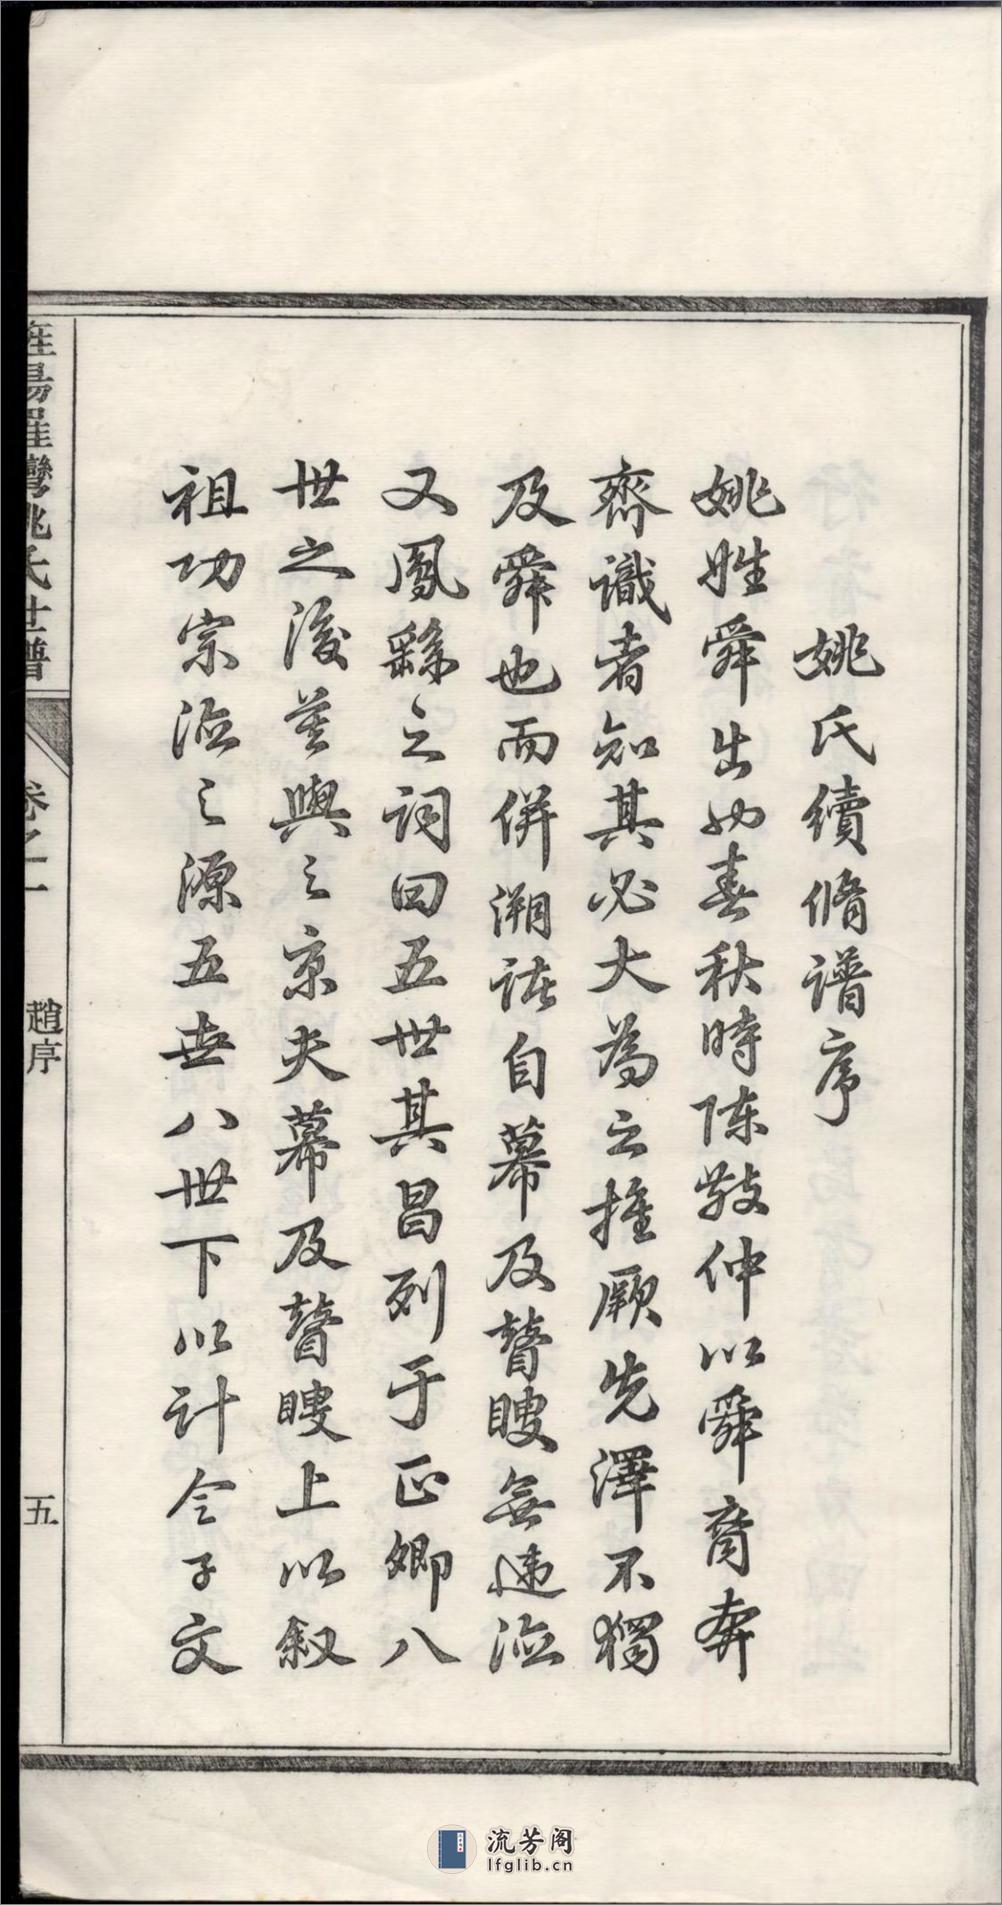 姚氏續脩譜序
姚姓舜出也春秋時陳敬仲以舜裔奔
齊識者知其必大為之推厥先澤不獨
及舜也而併溯諸自幕及瞽瞍無違命
又鳳繇之詞曰五世其昌列于正卿八
世之後莫與之京夫幕及瞽瞍上以敘
祖功宗德之源五世八世下以計令子文
羅灣姚氏世譜
卷之一
趙序
五
流芳阁
lfglib.cn